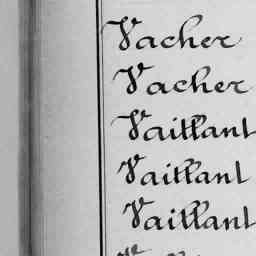 Vacher
Vacher
Vaillant
Vaillant
Vaillant